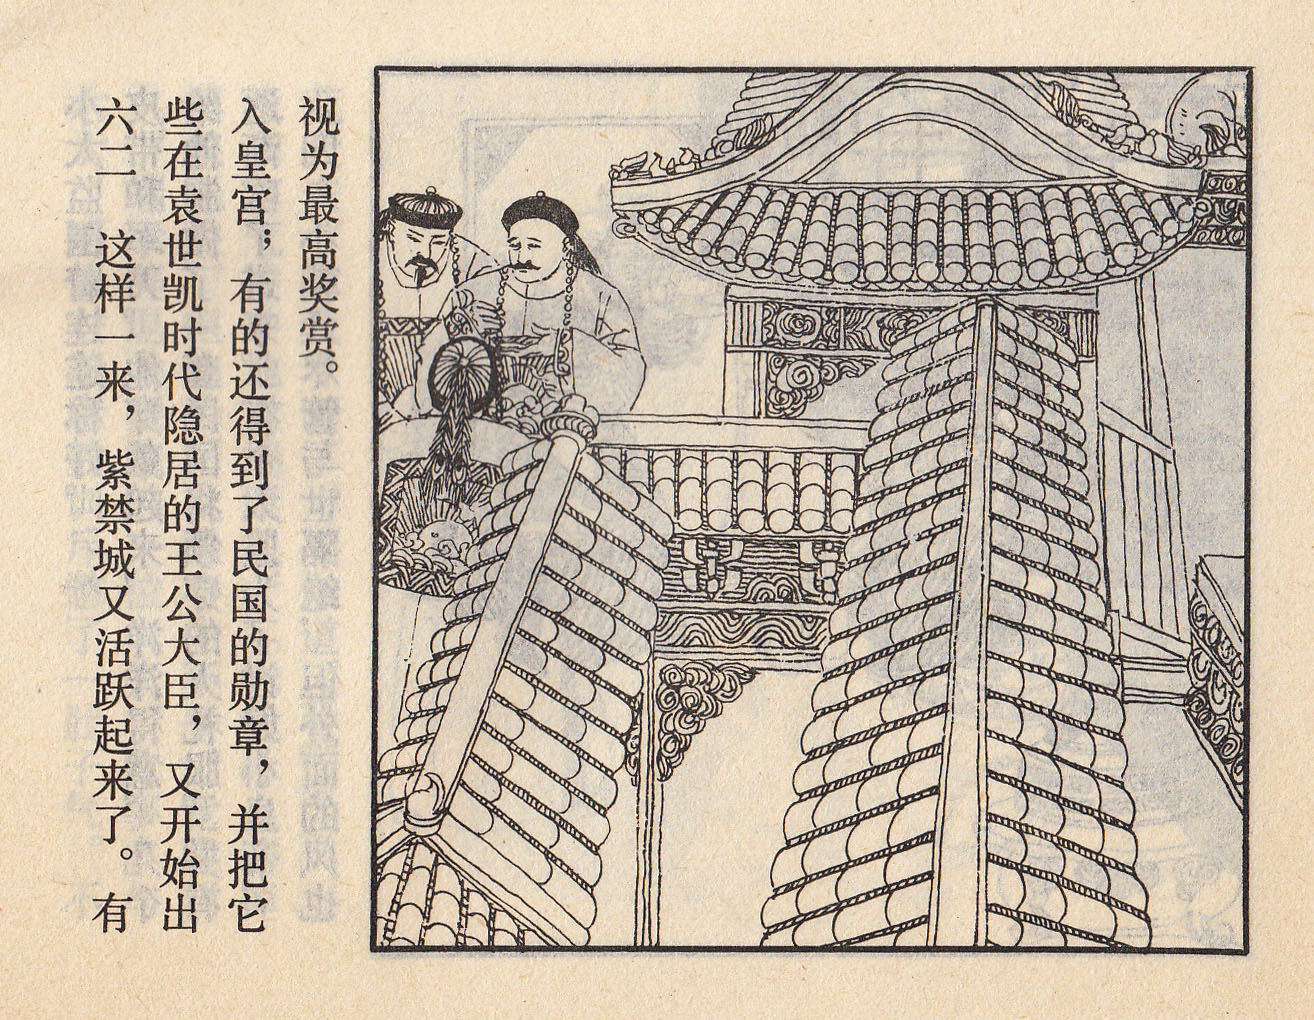 六二 这样一来，紫禁城又活跃起来了。有
些在袁世凯时代隐居的王公大臣，又开始出
入皇宫；有的还得到了民国的勋章，并把它
视为最高奖赏。